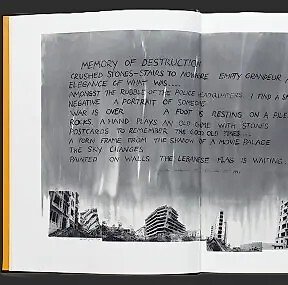 MEMORY OF DESTRUCTION
CRUSHED STONES-STAIRS TO NOWHERE EMPTY GRANDEUR
ELEGANCE OF WHAT WAS....
AMONGST THE RUBBLE OF THE POLICE HEADQUARTERS. I FIND A
NEGATIVE A PORTRAIT OF SOMEONE
WAR IS OVER A FOOT IS RESTING ON A PILE
ROCKS. A HAND PLAYS AN OLD GAME WITH STONES
POSTCARDS TO REMEMBER THE GOOD OLD TIMES...
A TORN FRAME FROM THE SHADOW OF A MOVIE PALACE
THE SKY CHANGES
PAINTED ON WALLS THE LEBANESE FLAG IS WAITING.